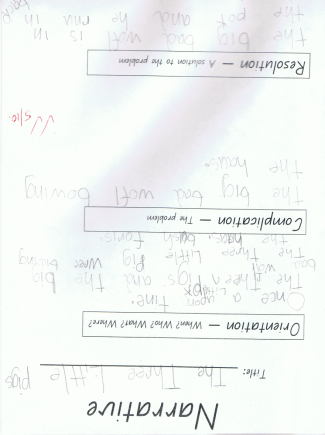 Narrative
Title: The Three Little pigs
Orientation — When? Who? What? Where?
Once a upon time.
The Three Little pigs and the big
bad wolf
The three Little Pig Were
the
Complication — The problem
the big bad wolf bowing
the house.
Resolution — A solution to the problem
the big bad wolf is in
the pot and he run in